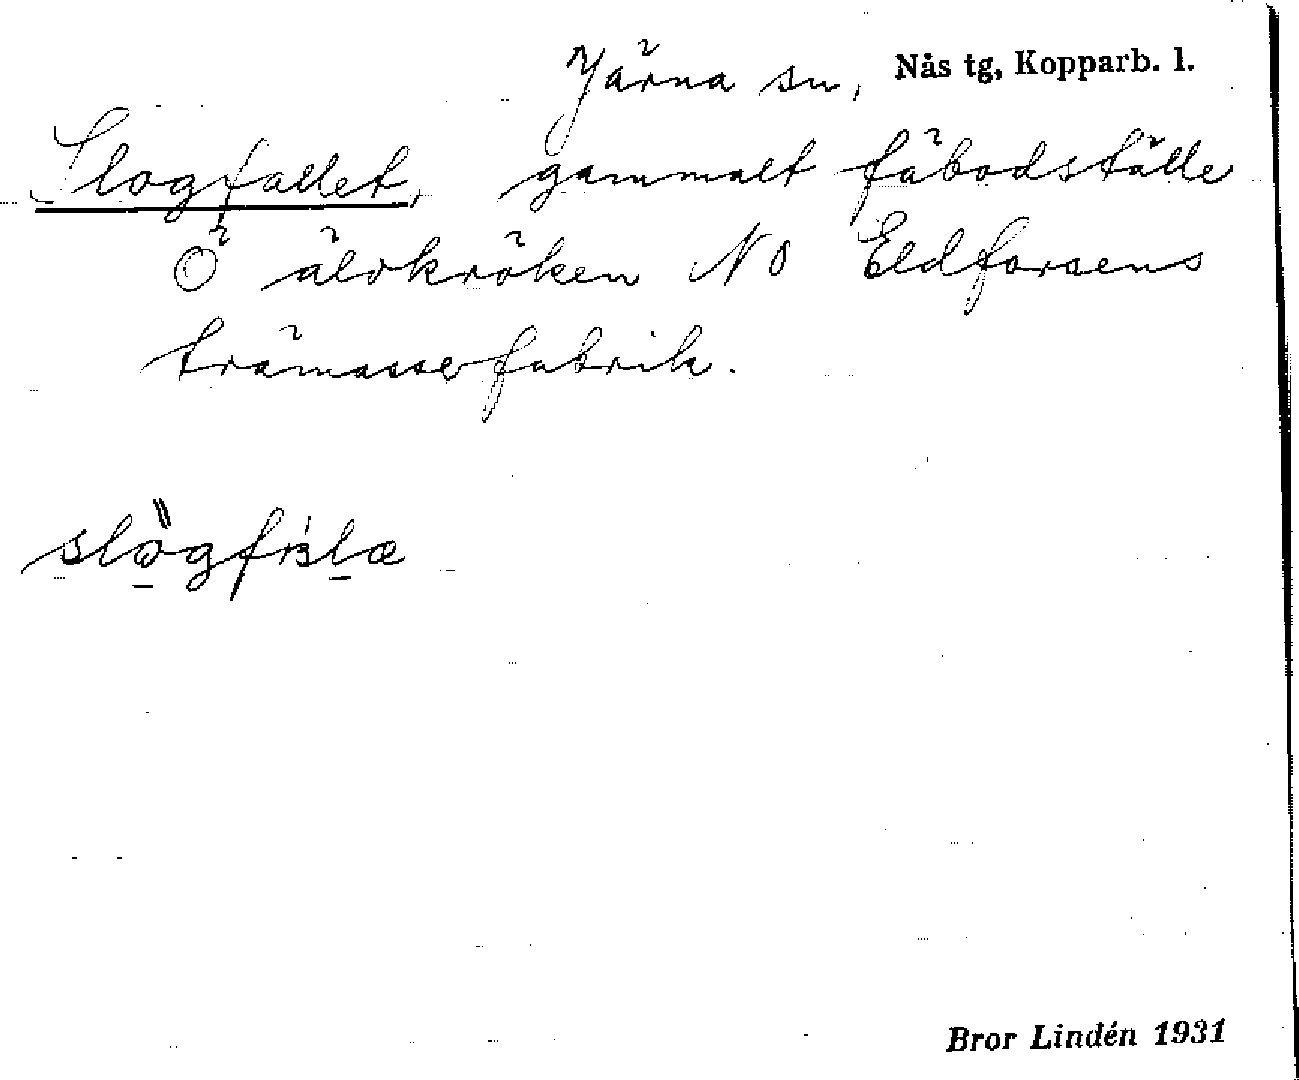 Järna sn, Nås tg, Kopparb. l.
Slogfallet, gammalt fäbodställe
Ö älvkröken NO Eldforsens
trämassefabrik.
Bror Lindén 1931